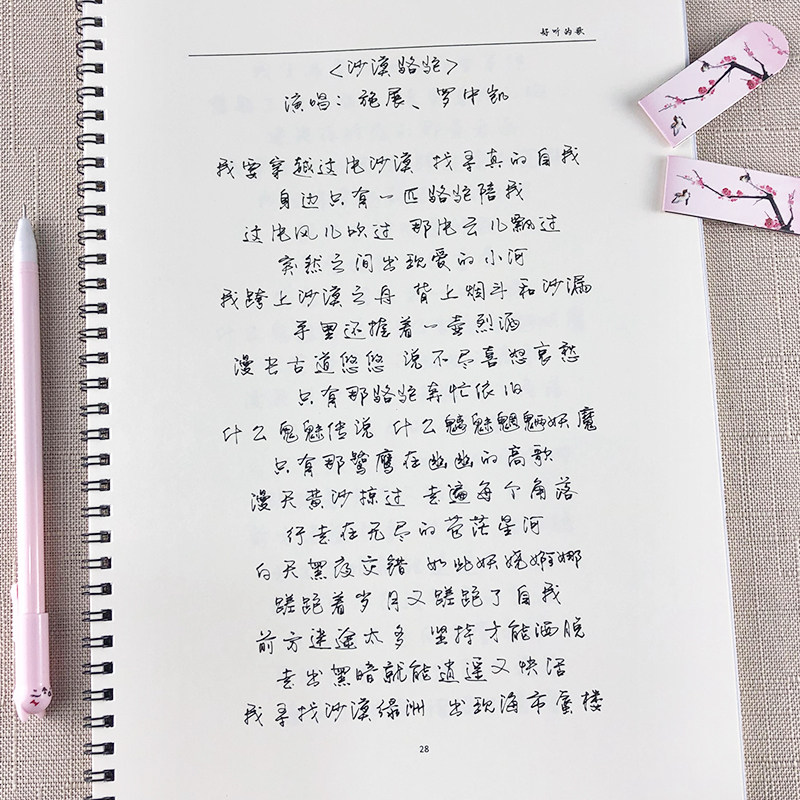 好听的歌
<沙漠骆驼>
演唱：施展、罗中凯
我要穿越过片沙漠 找寻真的自我
身边只有一匹骆驼陪我
过片风儿吹过 那片云儿飘过
突然之间出现爱的小河
我跨上沙漠之舟 背上烟斗和沙漏
手里还握着一壶烈酒
漫长古道悠悠 说不尽喜怒哀愁
只有那骆驼奔忙依旧
什么鬼魅传说 什么魑魅魍魉妖魔
只有那鹭鹰在幽幽的高歌
漫天黄沙掠过 走遍每个角落
行走在无尽的苍茫星河
白天黑夜交错 如此妖娆婀娜
蹉跎着岁月又蹉跎了自我
前方迷途太多 坚持才能洒脱
走出黑暗就能逍遥又快活
我寻找沙漠绿洲 出现海市蜃楼
28